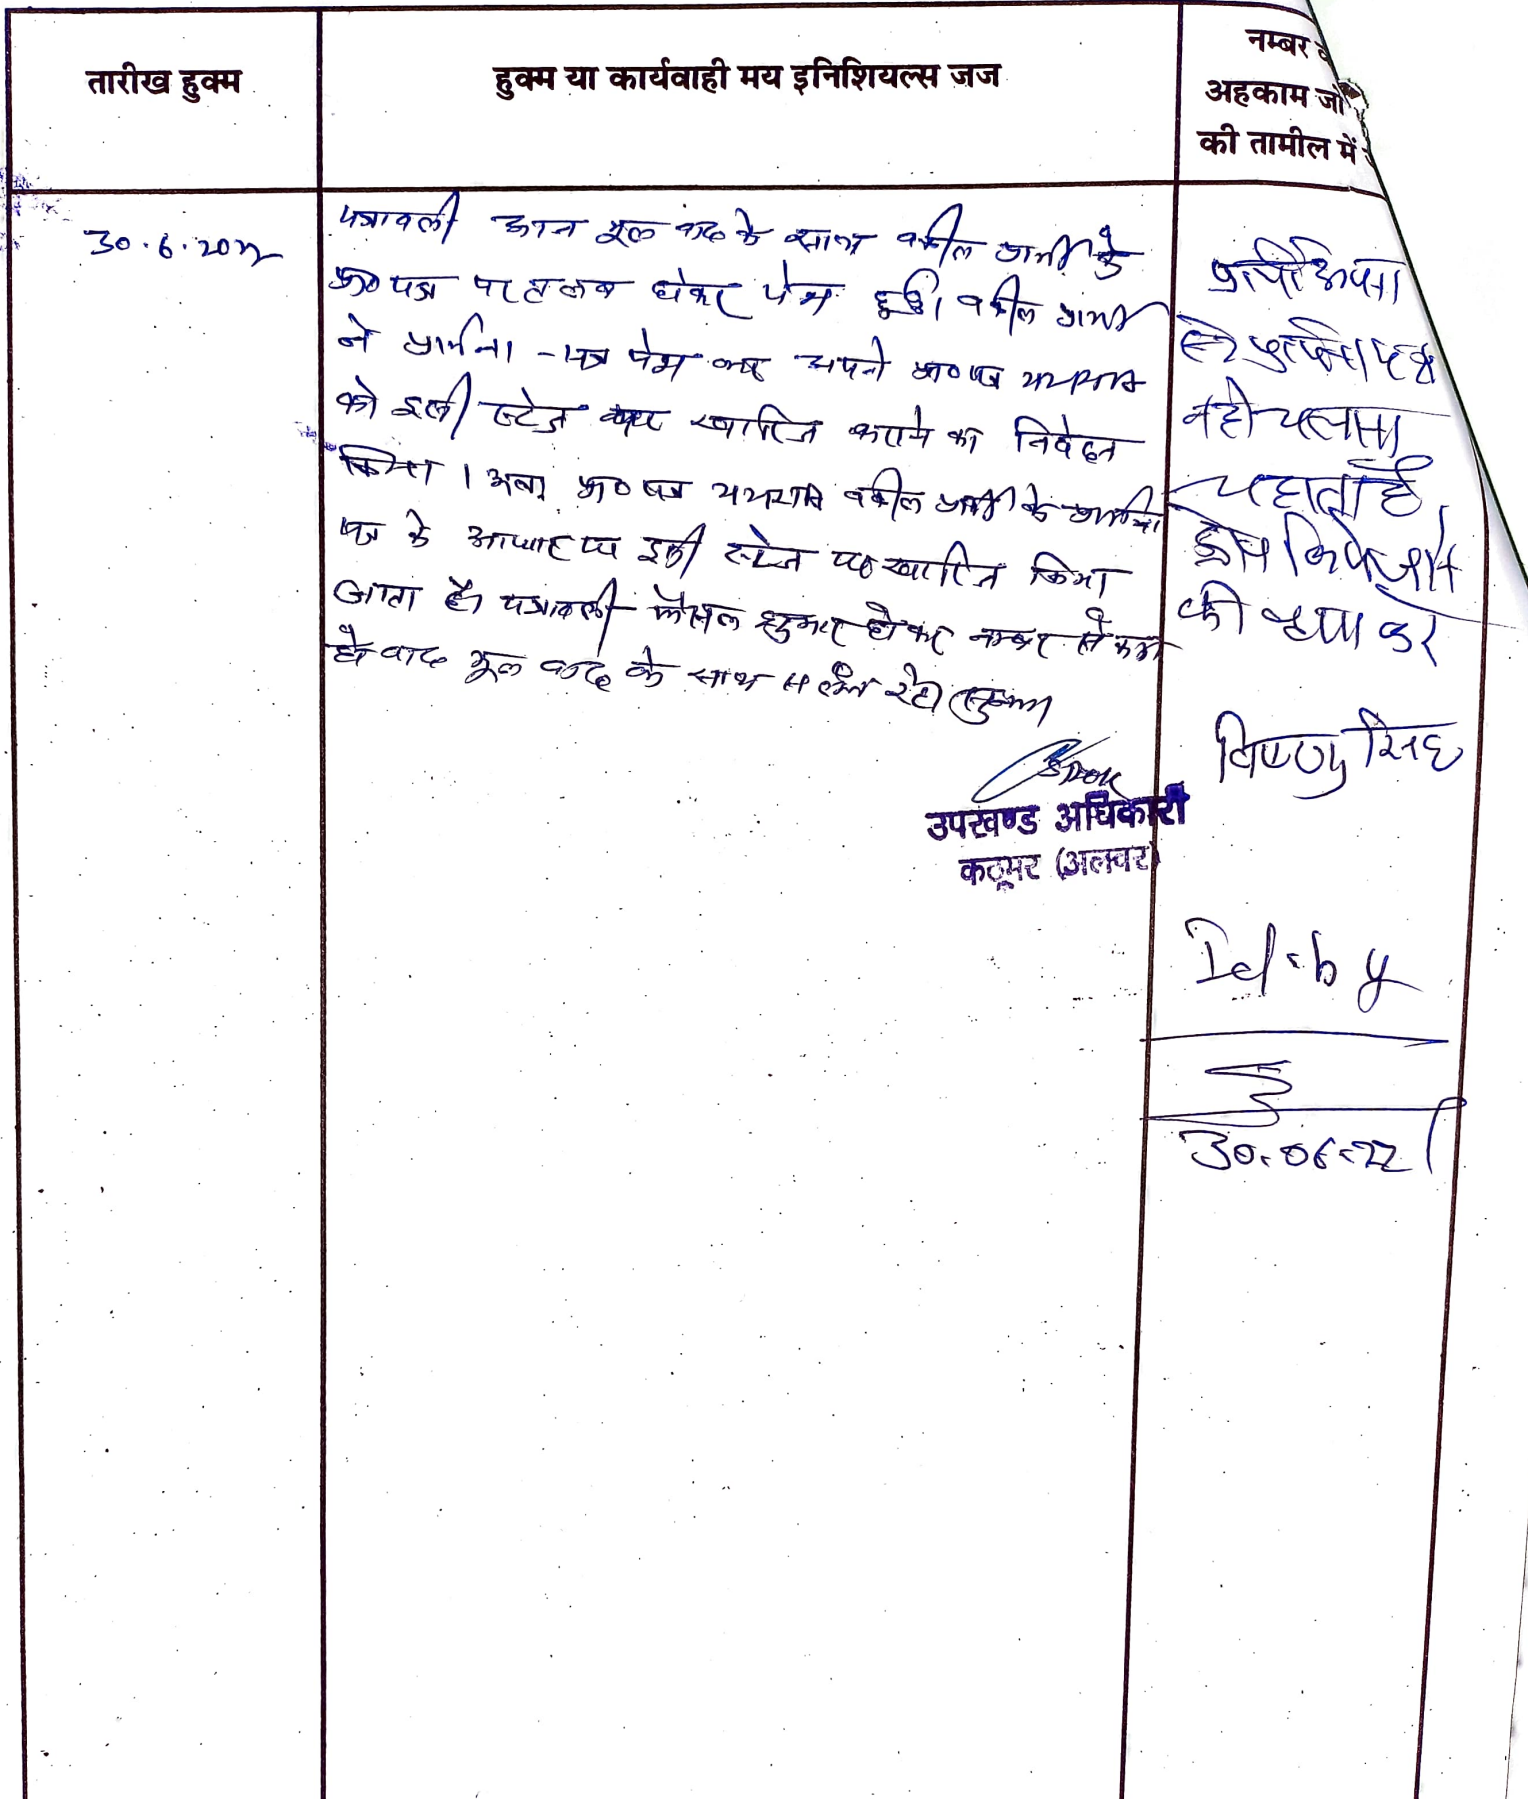 तारीख हुक्म
हुक्म या कार्यवाही मय इनिशियल्स जज
नम्बर व
अहकाम जो
की तामील में
30.6.2022
पत्रावली आज मूल वाद के साथ वकील प्रार्थी के
प्रा० पत्र पर तलब होकर पेश हुई। वकील प्रार्थी
ने प्रार्थना-पत्र पेश कर अपने प्रा० पत्र
को इसी स्टेज पर खारिज कराने का निवेदन
किया । अतः प्रा० पत्र वकील प्रार्थी के प्रार्थना
पत्र के आधार पर इसी स्टेज पर खारिज किया
जाता है। पत्रावली फैसल शुमार होकर नम्बर से कम
हो वाद मूल वाद के साथ संलग्न रहे।
उपखण्ड अधिकारी
कठूमर (अलवर)
प्रार्थी अपना
नही चलाना
चहाता है
की कृपा करे
विष्णु सिंह
Id = by
30.06.22